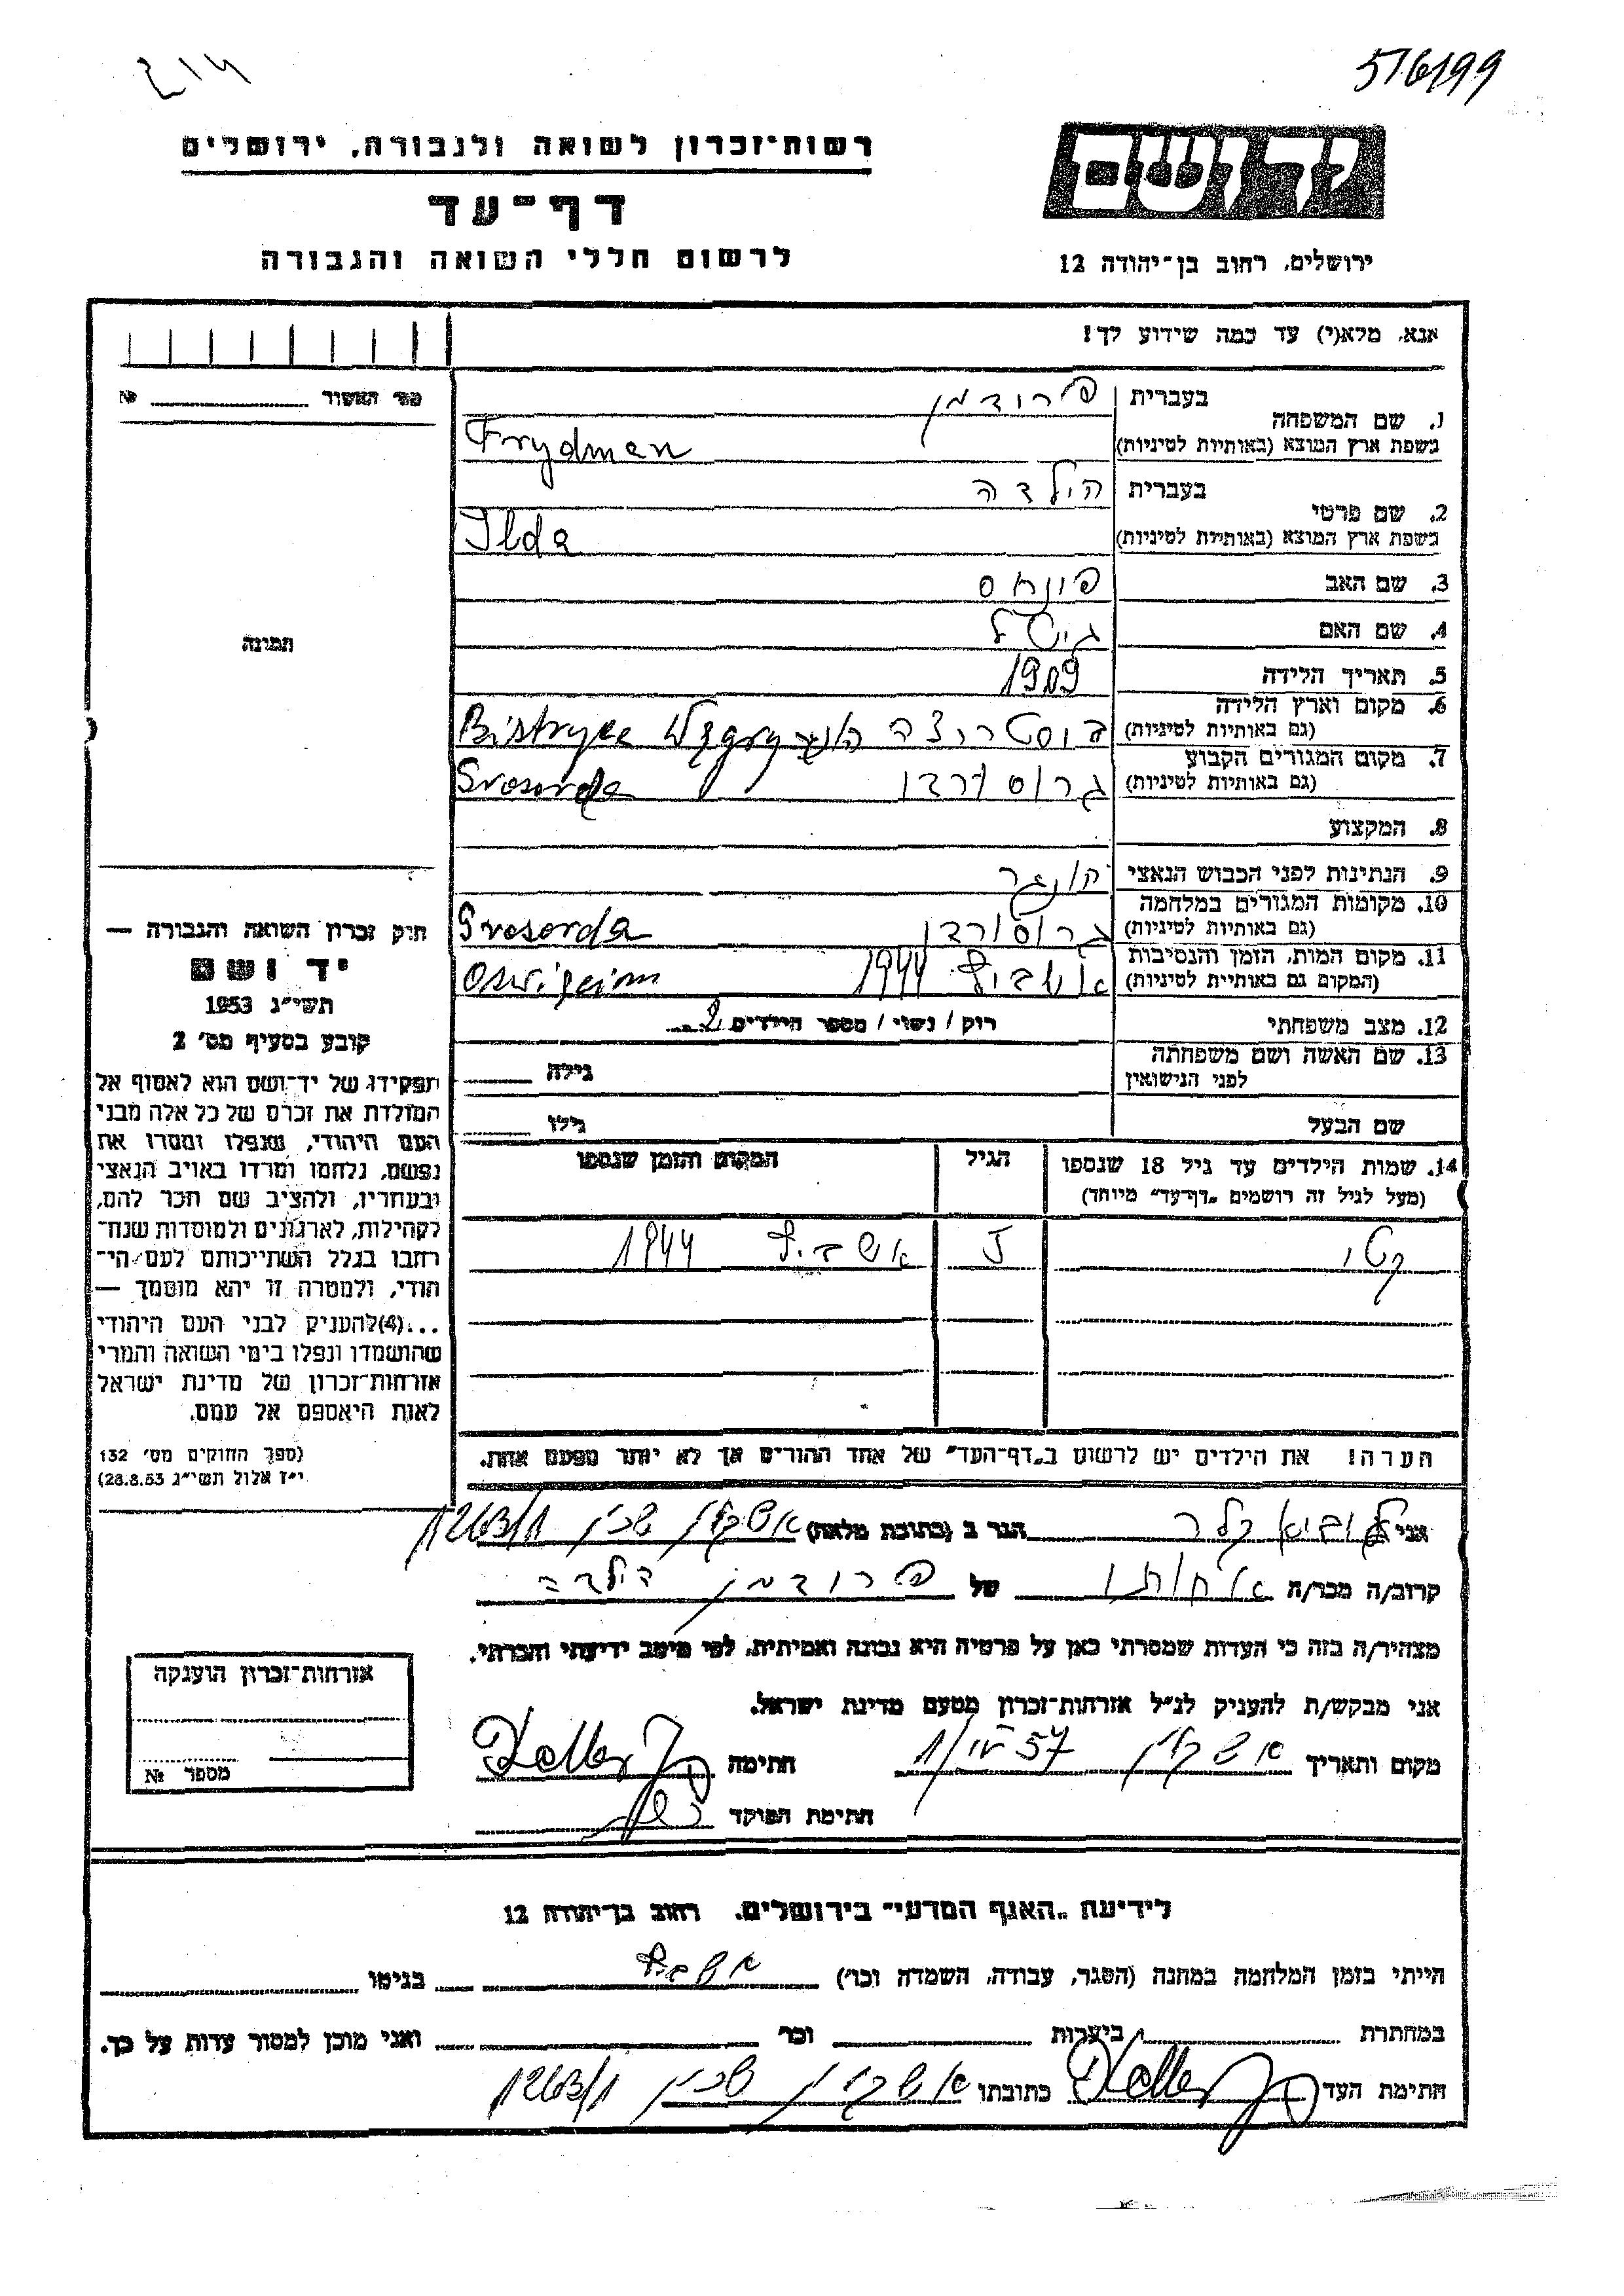 516199
רשות־זכרון לשואה ולגבורה, ירושלים
דף־עד
לרשום חללי השואה והגבורה
יד ושם
ירושלים, רחוב בן־יהודה 12
אנא, מלא(י) עד כמה שידוע לך!
מס' האשור №
תמונה
1. שם המשפחה
בעברית פרידמן
בשפת ארץ המוצא (באותיות לטיניות) Frydman
2. שם פרטי
בעברית הילדה
בשפת ארץ המוצא (באותיות לטיניות) Ilda
3. שם האב פינחס
4. שם האם גיטל
5. תאריך הלידה 1909
6. מקום וארץ הלידה
(גם באותיות לטיניות) ביסטריצה Bistryce
7. מקום המגורים הקבוע
(גם באותיות לטיניות) גרוסורדן Grosorda
8. המקצוע
9. הנתינות לפני הכבוש הנאצי
10. מקומות המגורים במלחמה
(גם באותיות לטיניות) גרוסורדן Grosorda
11. מקום המות, הזמן והנסיבות
(המקום גם באותיות לטיניות) אושביץ 1944 Oswiҫeim
12. מצב משפחתי רוק / נשוי / מספר הילדים 2
13. שם האשה ושם משפחתה
לפני הנישואין גילה
שם הבעל גילו
14. שמות הילדים עד גיל 18 שנספו הגיל המקום והזמן שנספו
(מעל לגיל זה רושמים „דף־עד" מיוחד)
קטי 5 אושביץ 1944
הערה! את הילדים יש לרשום ב„דף־העד" של אחד ההורים אך לא יותר מפעם אחת.
חוק זכרון השואה והגבורה —
יד ושם
תשי"ג 1953
קובע בסעיף מס' 2
תפקידו של יד־ושם הוא לאסוף אל
המולדת את זכרם של כל אלה מבני
העם היהודי, שנפלו ומסרו את
נפשם, נלחמו ומרדו באויב הנאצי
ובעוזריו, ולהציב שם וזכר להם,
לקהילות, לארגונים ולמוסדות שנח־
רבו בגלל השתייכותם לעם הי־
הודי, ולמטרה זו יהא מוסמך —
...(4) להעניק לבני העם היהודי
שהושמדו ונפלו בימי השואה והמרי
אזרחות־זכרון של מדינת ישראל
לאות היאספם אל עמם.
(ספר החוקים מס' 132
י"ז אלול תשי"ג 28.8.53)
אני קלר הגר ב (כתובת מלאה) אשקלון שכון 1263/1
קרוב/ה מכר/ה אחותו של פרידמן הילדה
מצהיר/ה בזה כי העדות שמסרתי כאן על פרטיה היא נכונה ואמיתית, לפי מיטב ידיעתי והכרתי.
אני מבקש/ת להעניק לנ"ל אזרחות־זכרון מטעם מדינת ישראל.
מקום ותאריך אשקלון 57 חתימה Keller
חתימת הפוקד
אזרחות־זכרון הוענקה
מספר №
לידיעת „האגף המדעי" בירושלים, רחוב בן־יהודה 12
הייתי בזמן המלחמה במחנה (הסגר, עבודה, השמדה וכו') אושביץ בגיטו
במחתרת ביערות וכו' ואני מוכן למסור עדות על כך.
חתימת העד Keller כתובתו אשקלון שכון 1263/1